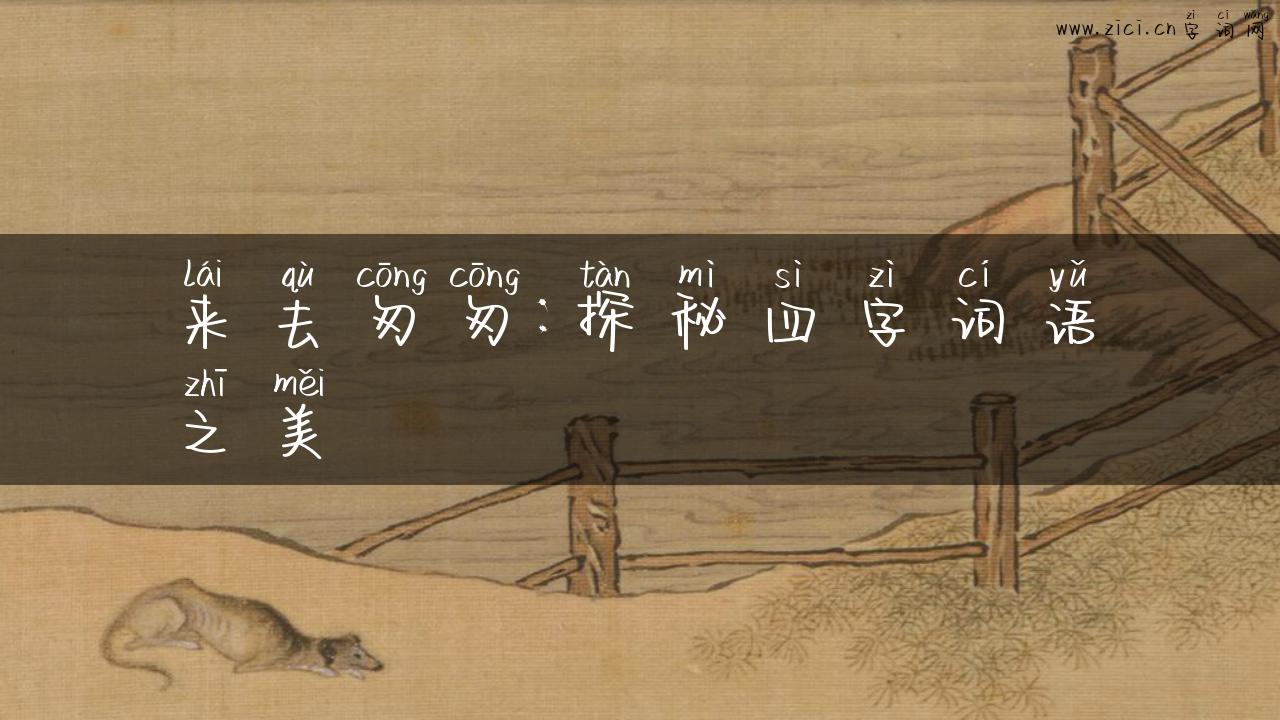 zì cí wǎng
www.zici.cn 字词网
lái qù cōng cōng tàn mì sì zì cí yǔ
来去匆匆:探秘四字词语
zhī měi
之美